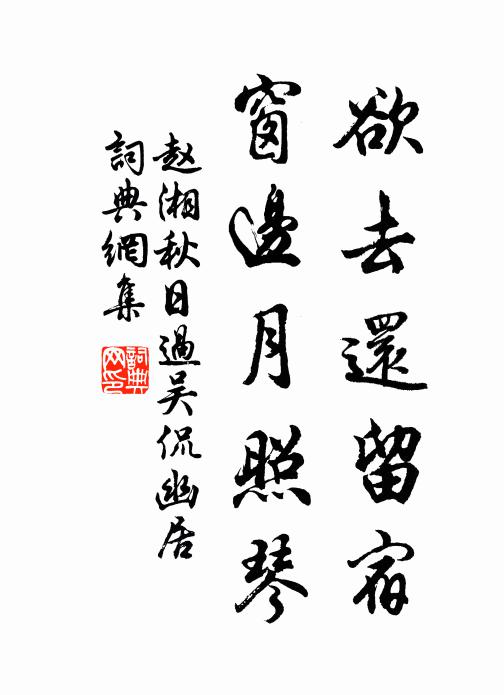 欲去還留宿
窗邊月照琴
赵湘秋日過吴侃幽居
詞典網集
詞典网印